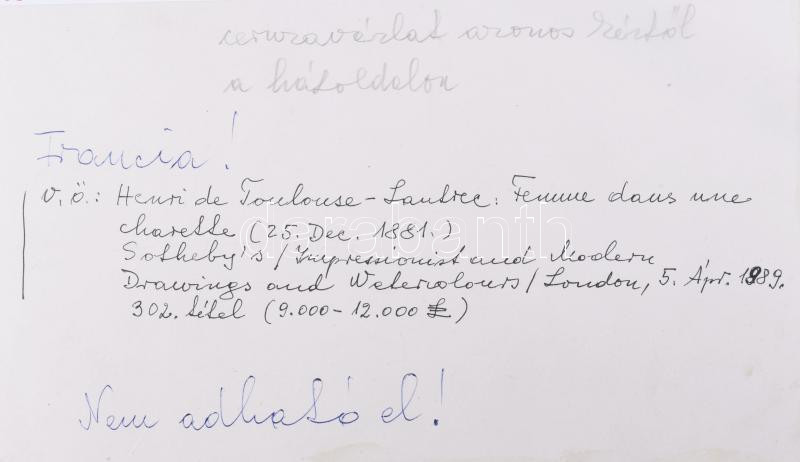 ceruzavázlat azonos kéztől
a hátoldalon
Francia!
V.ö.: Henri de Toulouse-Lautrec: Femme dans une
charette (25. Dec. 1881.)
Sotheby's/Impressionist and Modern
Drawings and Watercolours/London, 5. Ápr. 1989.
302. tétel (9.000-12.000 £)
Nem adható el!
darabanth